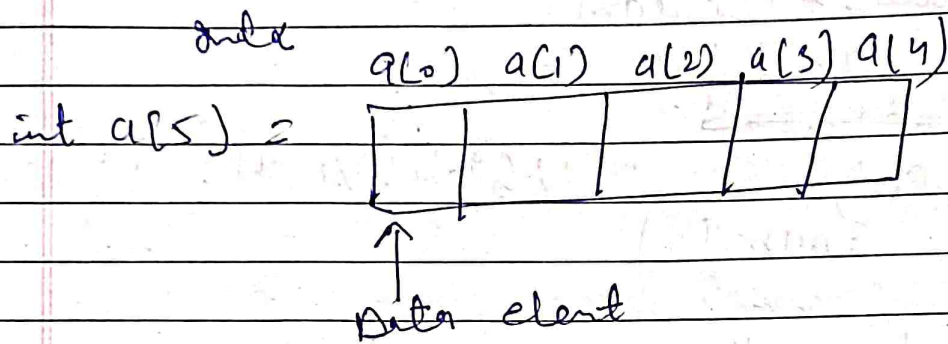 index
a[0] a[1] a[2] a[3] a[4]
int a[5] =
Data elent